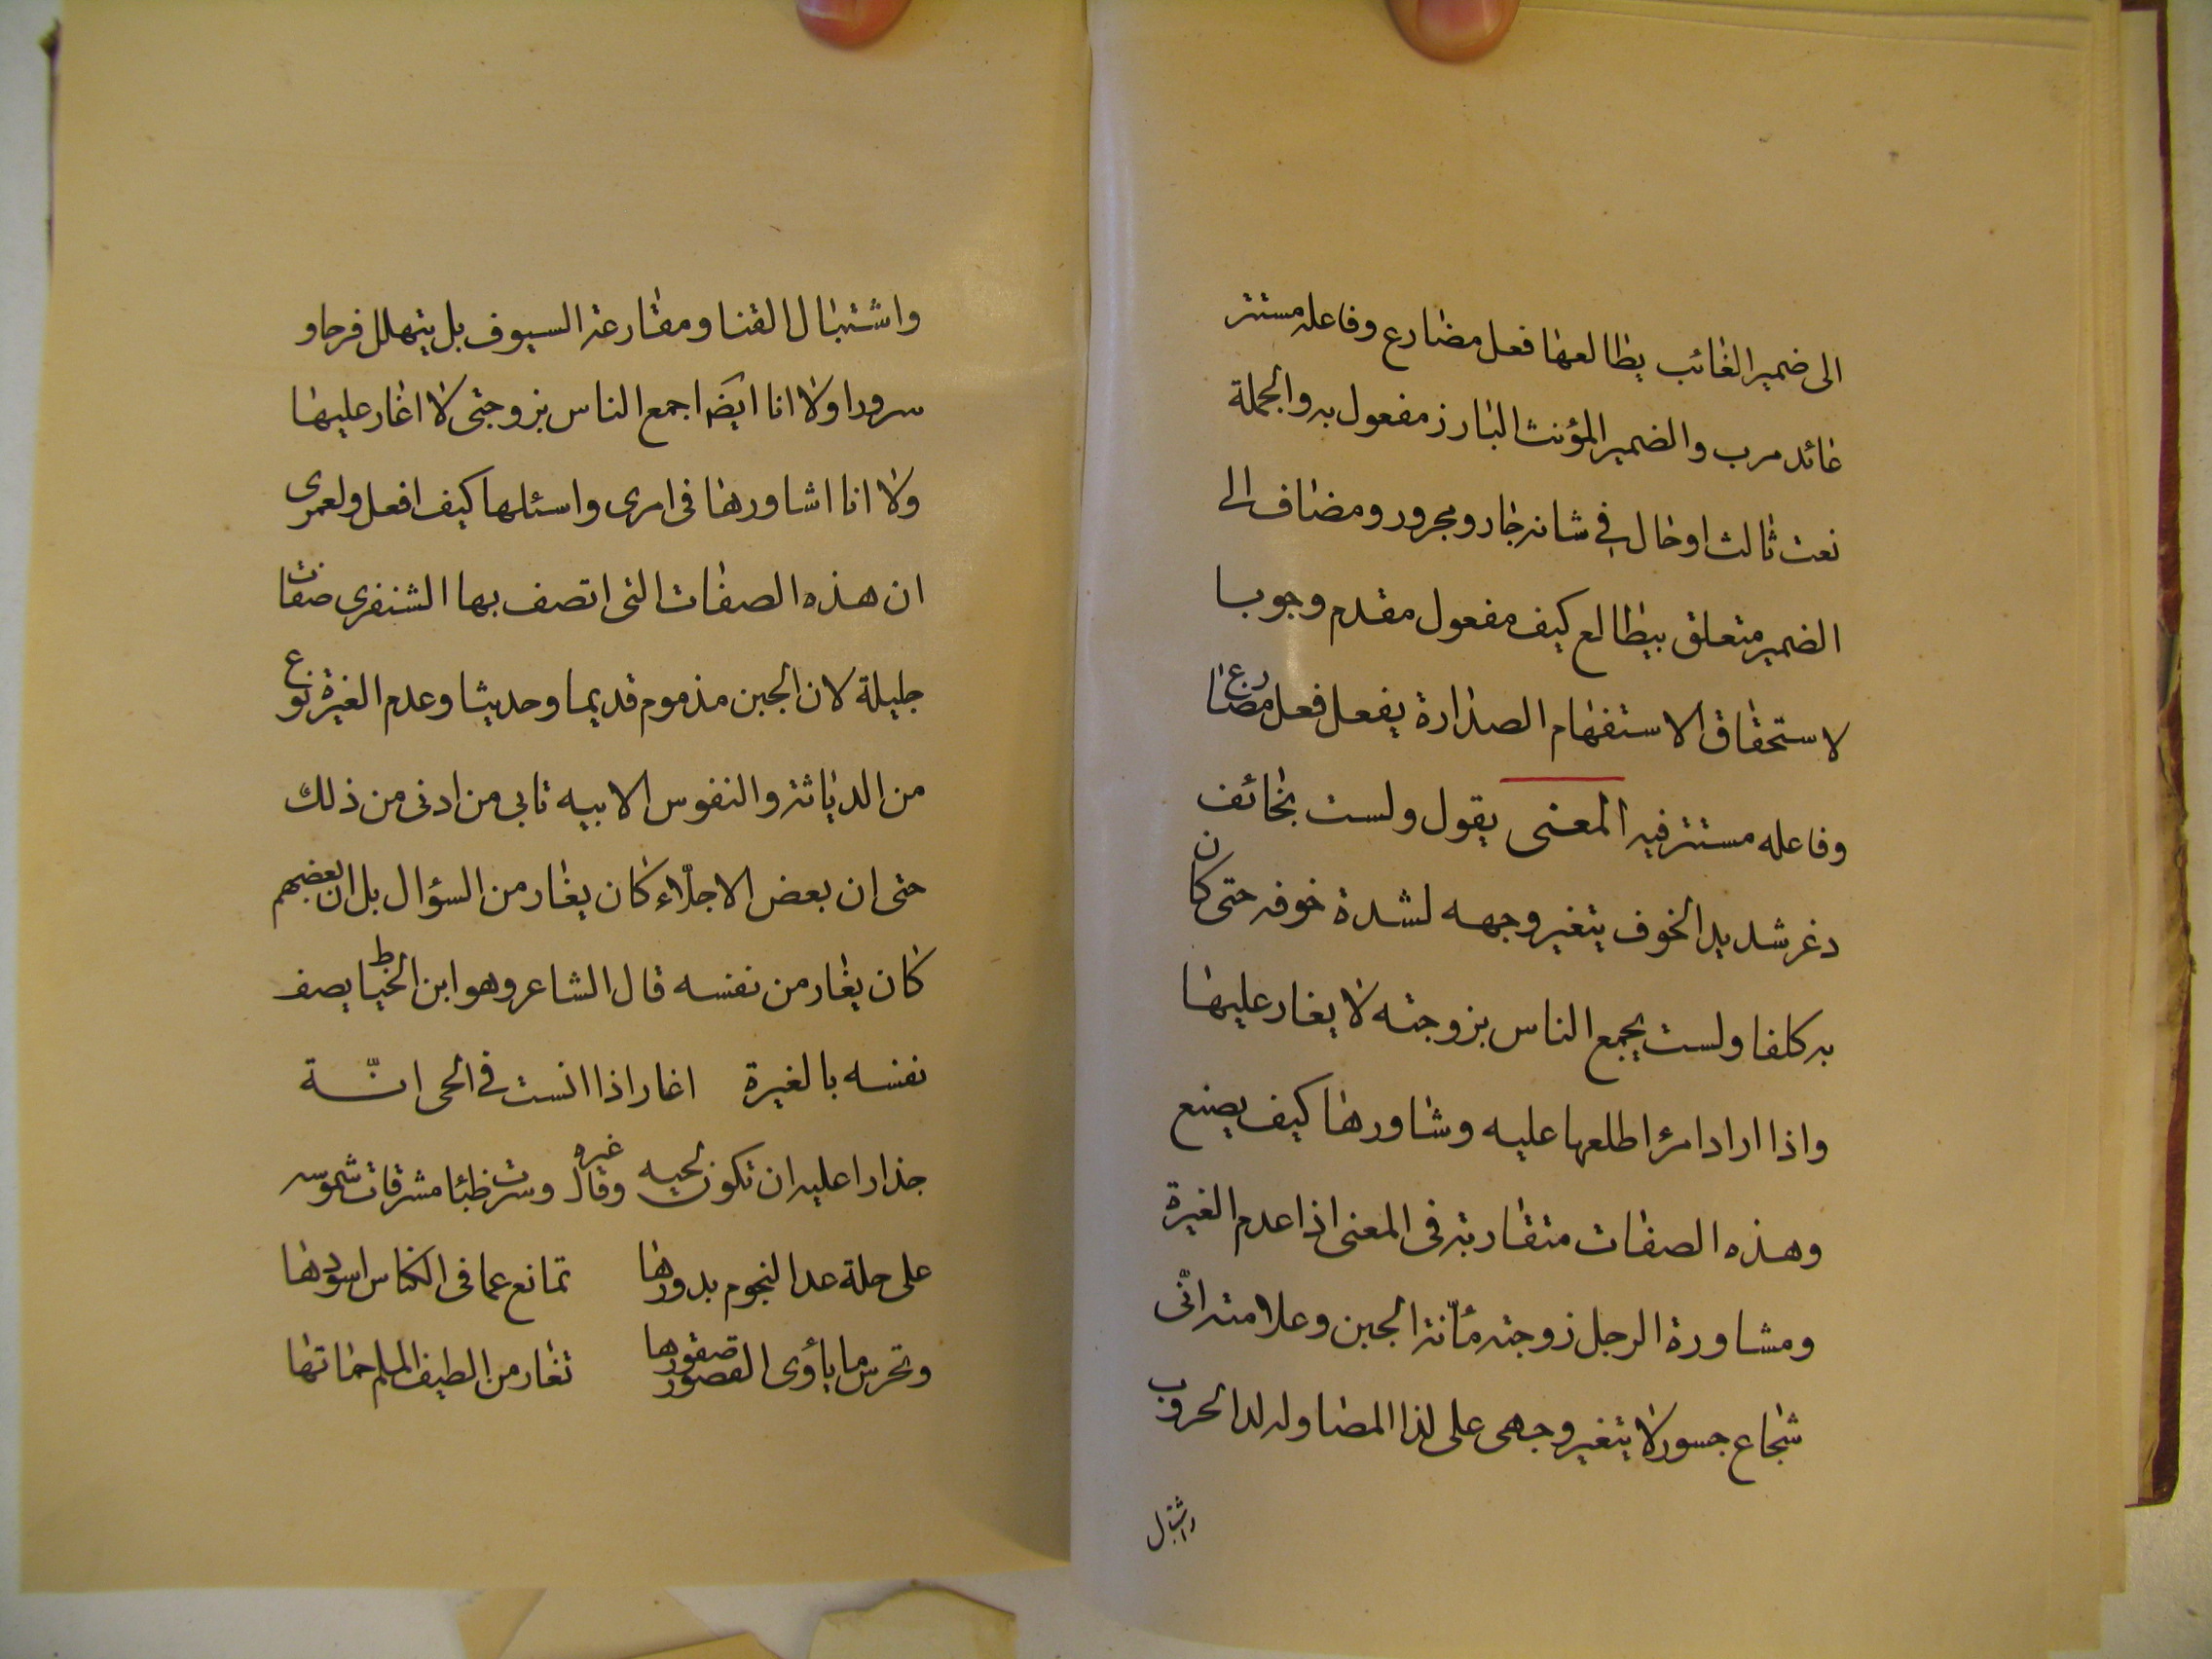 الى ضمير الغائب يطالعها فعل مضارع وفاعله مستتر
عائد مرب والضمير المؤنث البارز مفعول به والجملة
نعت ثالث او حال في شانه جار ومجرور ومضاف الى
الضمير متعلق بيطالع كيف مفعول مقدم وجوبا
لاستحقاق الاستفهام الصدارة يفعل فعل مضارع
وفاعله مستتر فيه المعنى يقول ولست بخائف
دغر شديد الخوف يتغير وجهه لشدة خوفه حتى كان
به كلفا ولست بجمع الناس بزوجته لا يغار عليها
واذا اراد امرا اطلعها عليه وشاورها كيف يصنع
وهذه الصفات متقاربة فى المعنى اذا عدم الغيرة
ومشاورة الرجل زوجته مئنة الجبن وعلامته انى
شجاع جسور لا يتغير وجهى على لذا المصاوله لدا الحروب
واشتبال
واشتبال القنا ومقارعة السيوف بل يتهلل فرحا و
سرورا ولا انا ايضه اجمع الناس بزوجتى لا اغار عليها
ولا انا اشاورها فى امرى واسئلها كيف افعل ولعمرى
ان هذه الصفات التى اتصف بها الشنفرى صفات
جليلة لان الجبن مذموم قديما وحديثا وعدم الغيرة نوع
من الدياثة والنفوس الابيه تابى من ادنى من ذلك
حتى ان بعض الاجلّاء كان يغار من السؤال بل ان بعضهم
كان يغار من نفسه قال الشاعر وهو ابن الخياط يصف
نفسه بالغيرة اغار اذا انست فى الحى انّـة
حذارا عليه ان تكون لحبه وقال غيره وسرت ظبا مشرقات شموسه
على حلة عدا النجوم بدورها تمانع عما فى الكناس اسودها
وتحرس ما يأوى القصور صقورها تغار من الطيف الملم حماتها